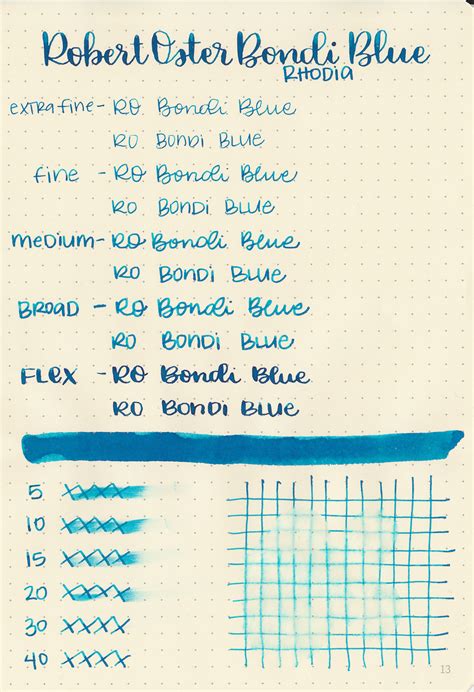 Robert Oster Bondi Blue
RHODIA
extra fine - RO Bondi Blue
RO BONDI BLUE
fine - RO Bondi Blue
RO BONDI BLUE
MEDIUM - RO Bondi Blue
RO BONDI BLUE
BROAD - RO Bondi Blue
RO BONDI BLUE
FLEX - RO Bondi Blue
RO BONDI BLUE
5 XXXX
10 XXXX
15 XXXX
20 XXXX
30 XXXX
40 XXXX
13